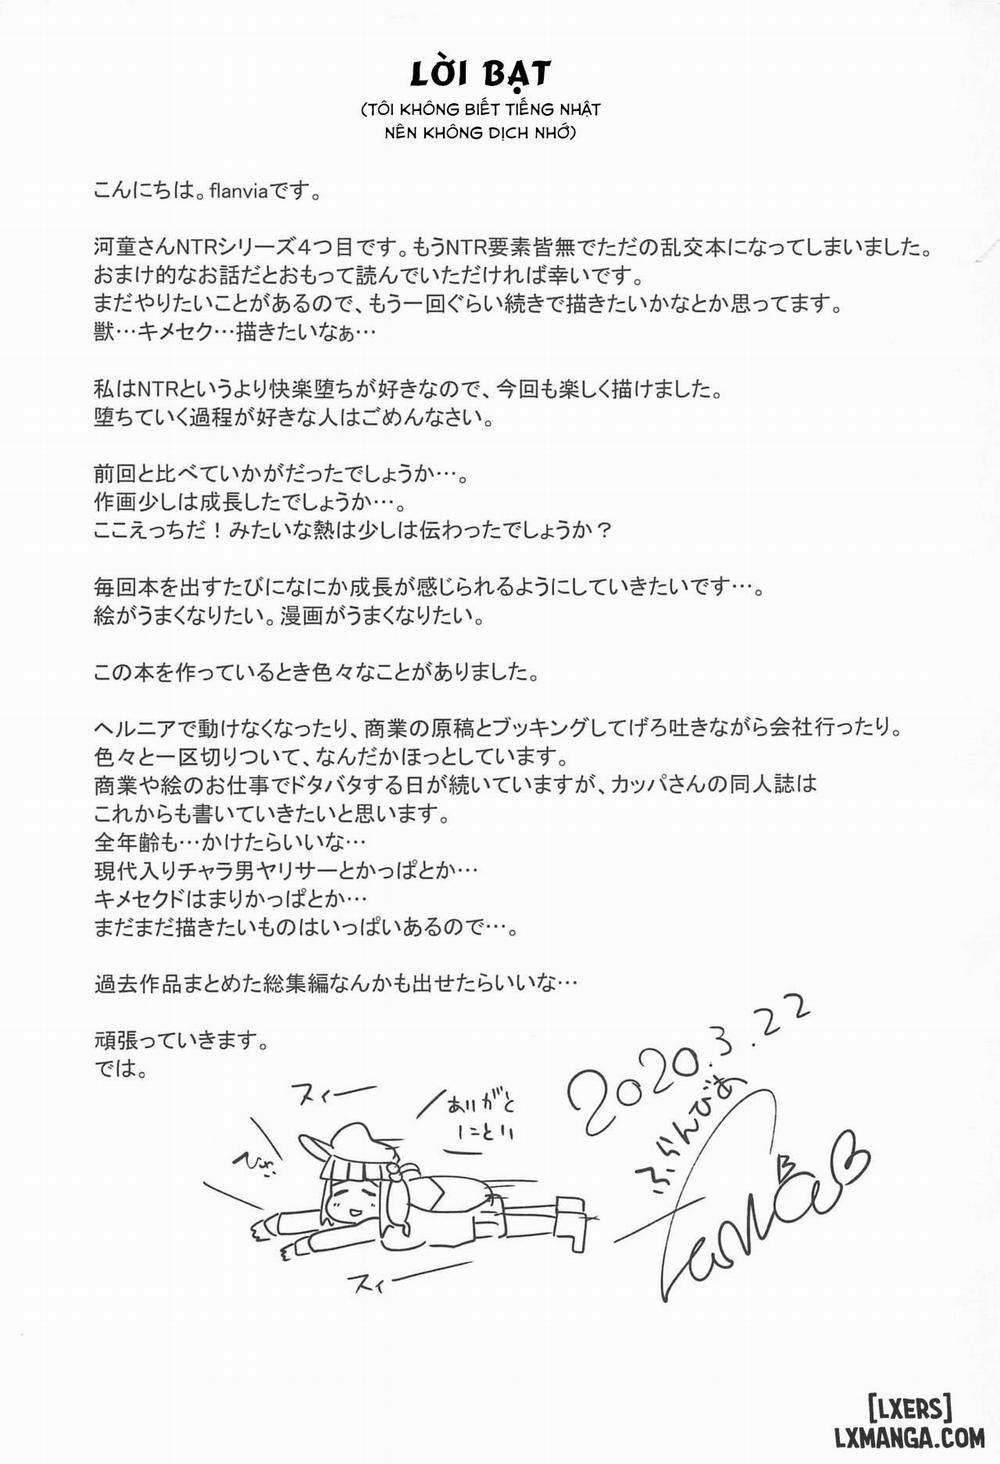 LỜI BẠT
(TÔI KHÔNG BIẾT TIẾNG NHẬT
NÊN KHÔNG DỊCH NHỚ)
こんにちは。flanviaです。
河童さんNTRシリーズ４つ目です。もうNTR要素皆無でただの乱交本になってしまいました。
おまけ的なお話だとおもって読んでいただければ幸いです。
まだやりたいことがあるので、もう一回ぐらい続きで描きたいかなとか思ってます。
獣…キメセク…描きたいなぁ…
私はNTRというより快楽堕ちが好きなので、今回も楽しく描けました。
堕ちていく過程が好きな人はごめんなさい。
前回と比べていかがだったでしょうか…。
作画少しは成長したでしょうか…。
ここえっちだ！みたいな熱は少しは伝わったでしょうか？
毎回本を出すたびになにか成長が感じられるようにしていきたいです…。
絵がうまくなりたい。漫画がうまくなりたい。
この本を作っているとき色々なことがありました。
ヘルニアで動けなくなったり、商業の原稿とブッキングしてげろ吐きながら会社行ったり。
色々と一区切りついて、なんだかほっとしています。
商業や絵のお仕事でドタバタする日が続いていますが、カッパさんの同人誌は
これからも書いていきたいと思います。
全年齢も…かけたらいいな…
現代入りチャラ男ヤリサーとかっぱとか…
キメセクドはまりかっぱとか…
まだまだ描きたいものはいっぱいあるので…。
過去作品まとめた総集編なんかも出せたらいいな…
頑張っていきます。
では。
スィー
ありがと
にとり
スィー
2020.3.22
ふらんびあ
[LXERS]
LXMANGA.COM